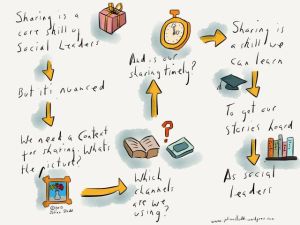 Sharing is a
core skill of
Social Leaders
But it's nuanced
We need a Context
for sharing. What's
the picture?
Which
channels
are we
using?
And is our
sharing timely?
Sharing is
a skill we
can learn
To get our
stories heard
As social
leaders